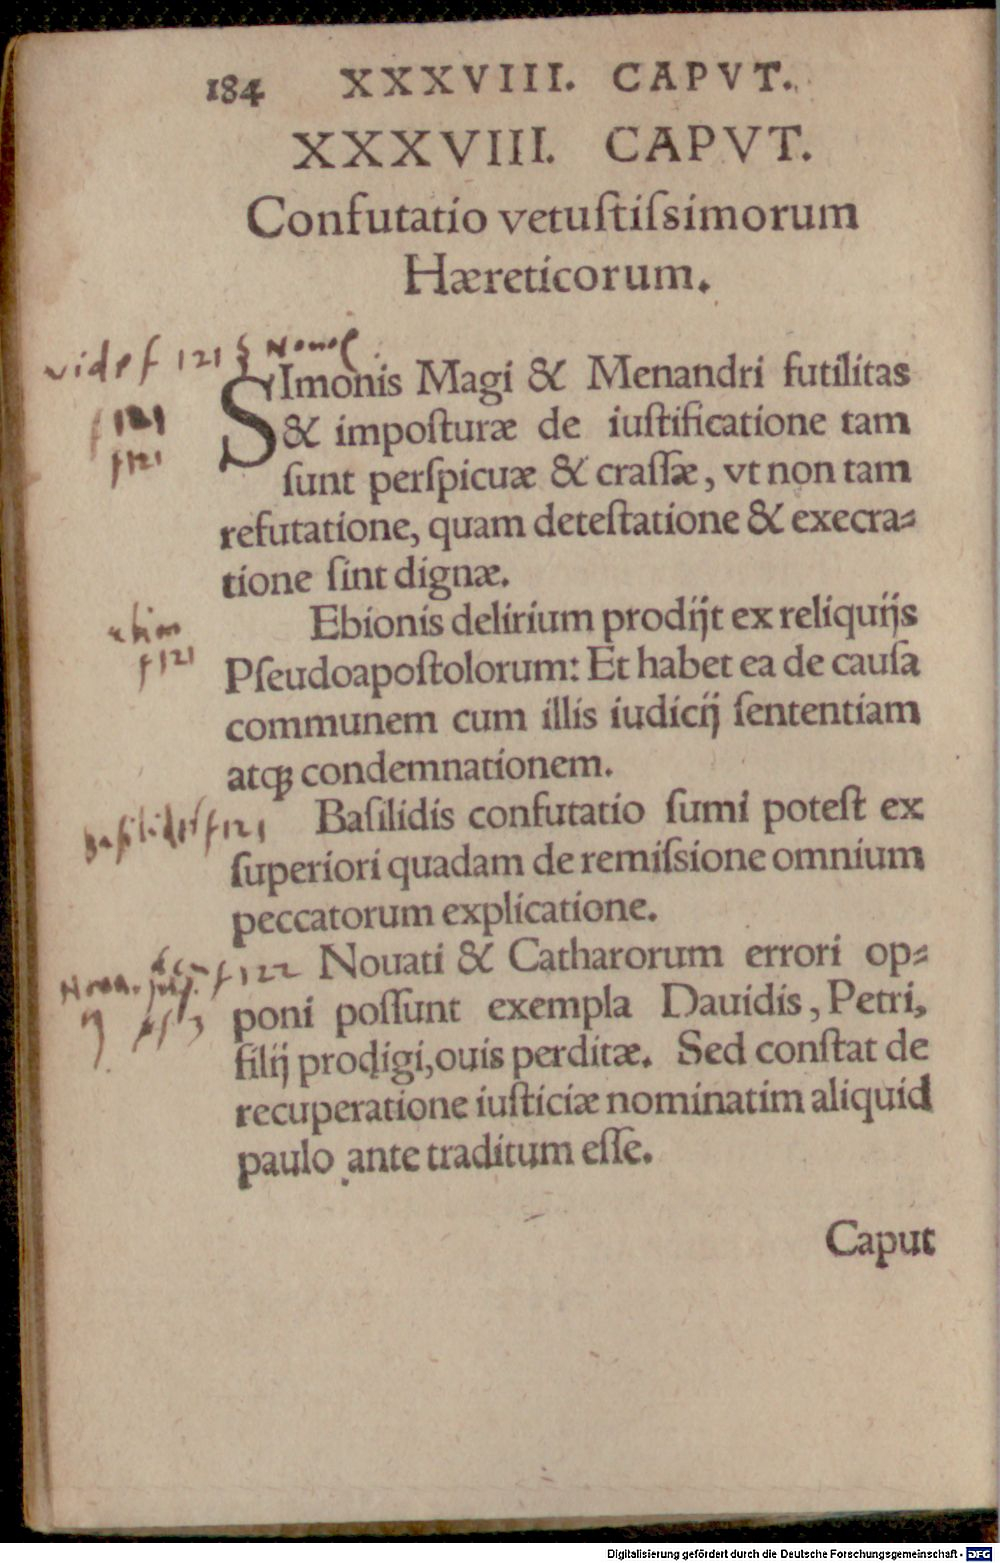 184 XXXVIII. CAPVT.
XXXVIII. CAPVT.
Confutatio vetuſtiſsimorum
Hæreticorum.
vide f 121 §
SImonis Magi & Menandri futilitas
f 121
& impoſturæ de iuſtificatione tam
f 121
ſunt perſpicuæ & craſſæ, vt non tam
refutatione, quam deteſtatione & execra⸗
tione ſint dignæ.
Ebionis delirium prodijt ex reliquijs
f 121
Pſeudoapoſtolorum: Et habet ea de cauſa
communem cum illis iudicij ſententiam
atq́; condemnationem.
Baſilidis f 121
Baſilidis confutatio ſumi poteſt ex
ſuperiori quadam de remiſsione omnium
peccatorum explicatione.
f 122
Nouati & Catharorum errori op⸗
poni poſſunt exempla Dauidis, Petri,
filij prodigi, ouis perditæ. Sed conſtat de
recuperatione iuſticiæ nominatim aliquid
paulo ante traditum eſſe.
Caput
Digitalisierung gefördert durch die Deutsche Forschungsgemeinschaft - DFG